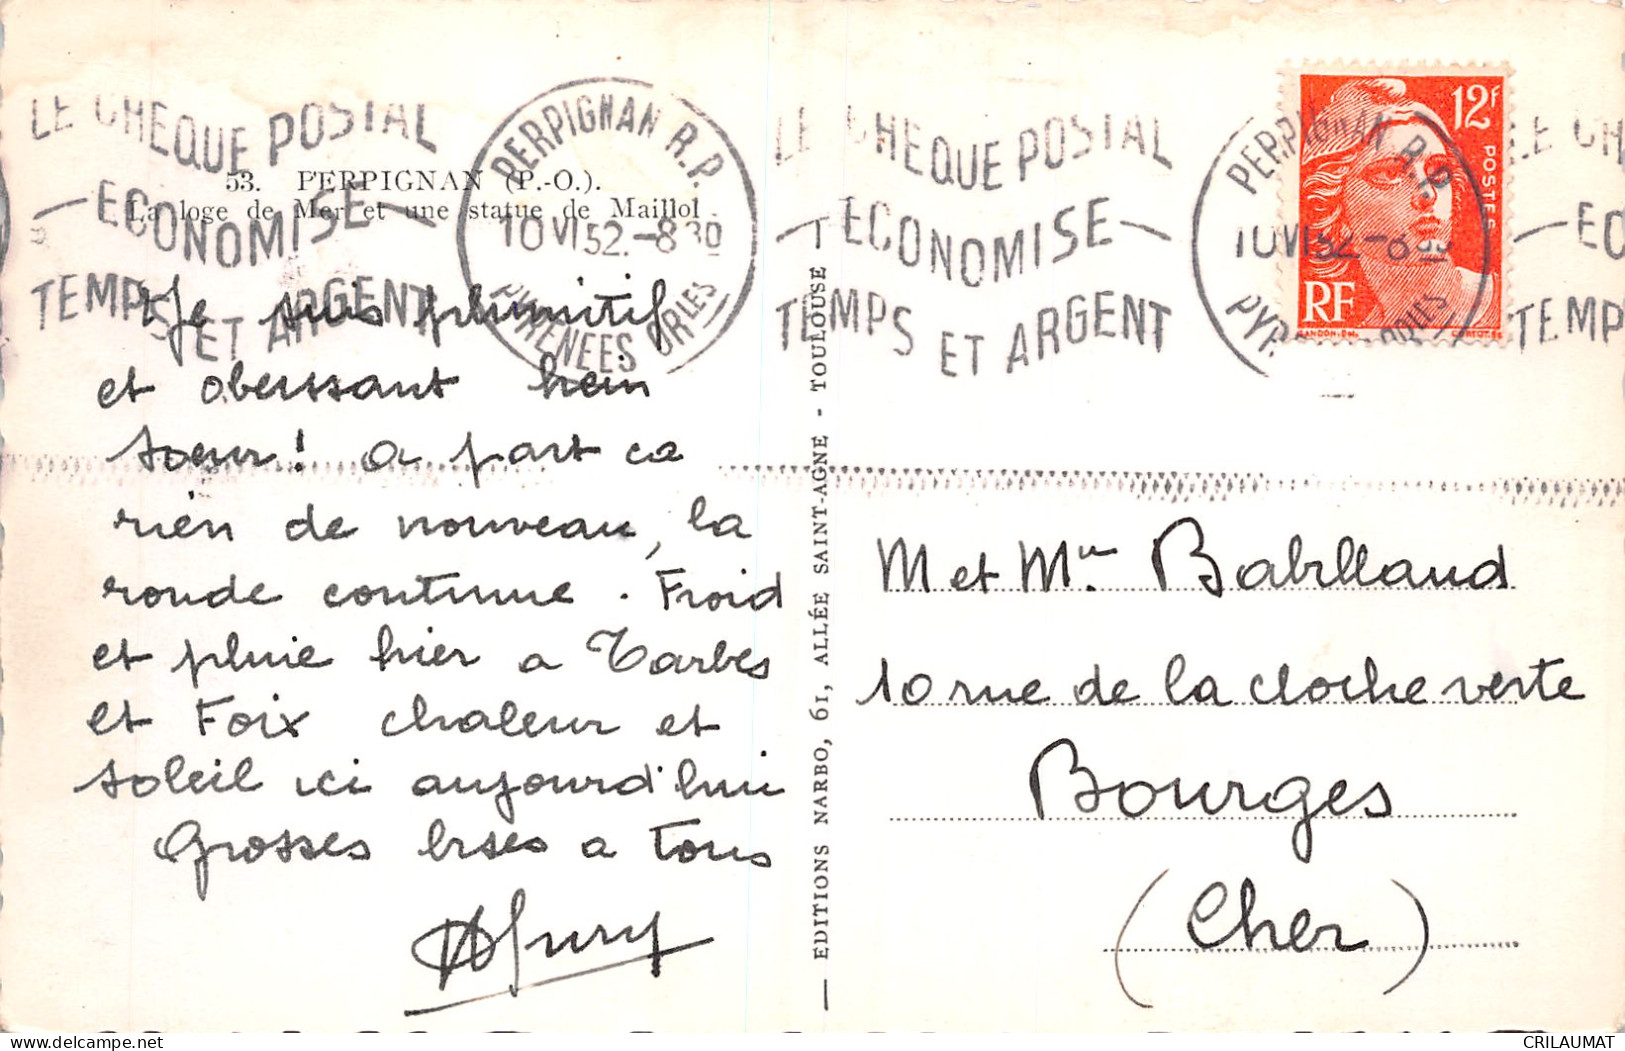 LE CHEQUE POSTAL
— ECONOMISE —
TEMPS ET ARGENT
PERPIGNAN R.P.
10 VI 52 - 8 30
PYRENEES ORLES
53. PERPIGNAN (P.-O.).
La loge de Mer et une statue de Maillol
Je suis plumitif
et obeissant hein
soeur ! a part ca
rien de nouveau, la
ronde continue . Froid
et pluie hier a Tarbes
et Foix chaleur et
soleil ici aujourd'hui
Grosses bises a Tous
— EDITIONS NARBO, 61, ALLÉE SAINT-AGNE - TOULOUSE
LE CHEQUE POSTAL
— ECONOMISE —
TEMPS ET ARGENT
PERPIGNAN R.P.
10 VI 52 - 8
12F
POSTES
RF
GANDON-DEL.
LE CH
— ECO
TEMP
M et Mme Babilland
10 rue de la cloche verte
Bourges
(Cher)
CRILAUMAT